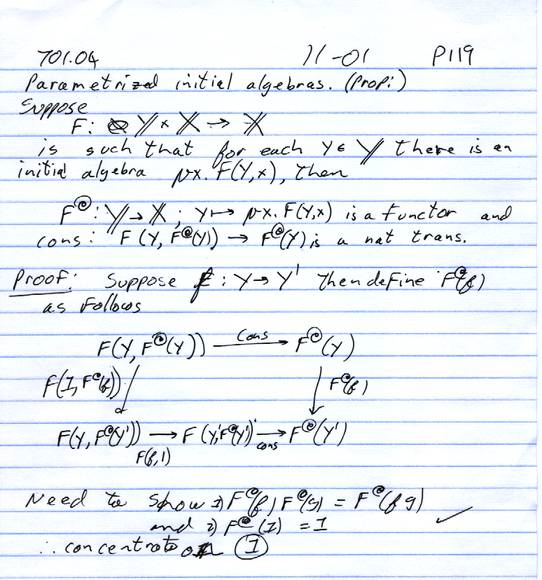 701.04 11-01 P119
Parametrized initial algebras. (Prop:)
Suppose
F: Y × X → X
is such that for each Y ∈ Y there is an
initial algebra μx. F(Y,x), then
F^@: Y → X ; Y ↦ μx. F(Y,x) is a functor and
cons: F(Y, F^@(Y)) → F^@(Y) is a nat trans.
Proof: Suppose f: Y → Y' Then define F^@(f)
as follows
F(Y, F^@(Y)) cons → F^@(Y)
F(1, F^@(f)) ↓ ↓ F^@(f)
F(Y, F^@(Y')) → F(Y', F^@(Y')) → F^@(Y')
F(f, 1) cons
Need to show 1) F^@(f) F^@(g) = F^@(f g)
and 2) F^@(1) = 1 ✓
∴ concentrate on ①